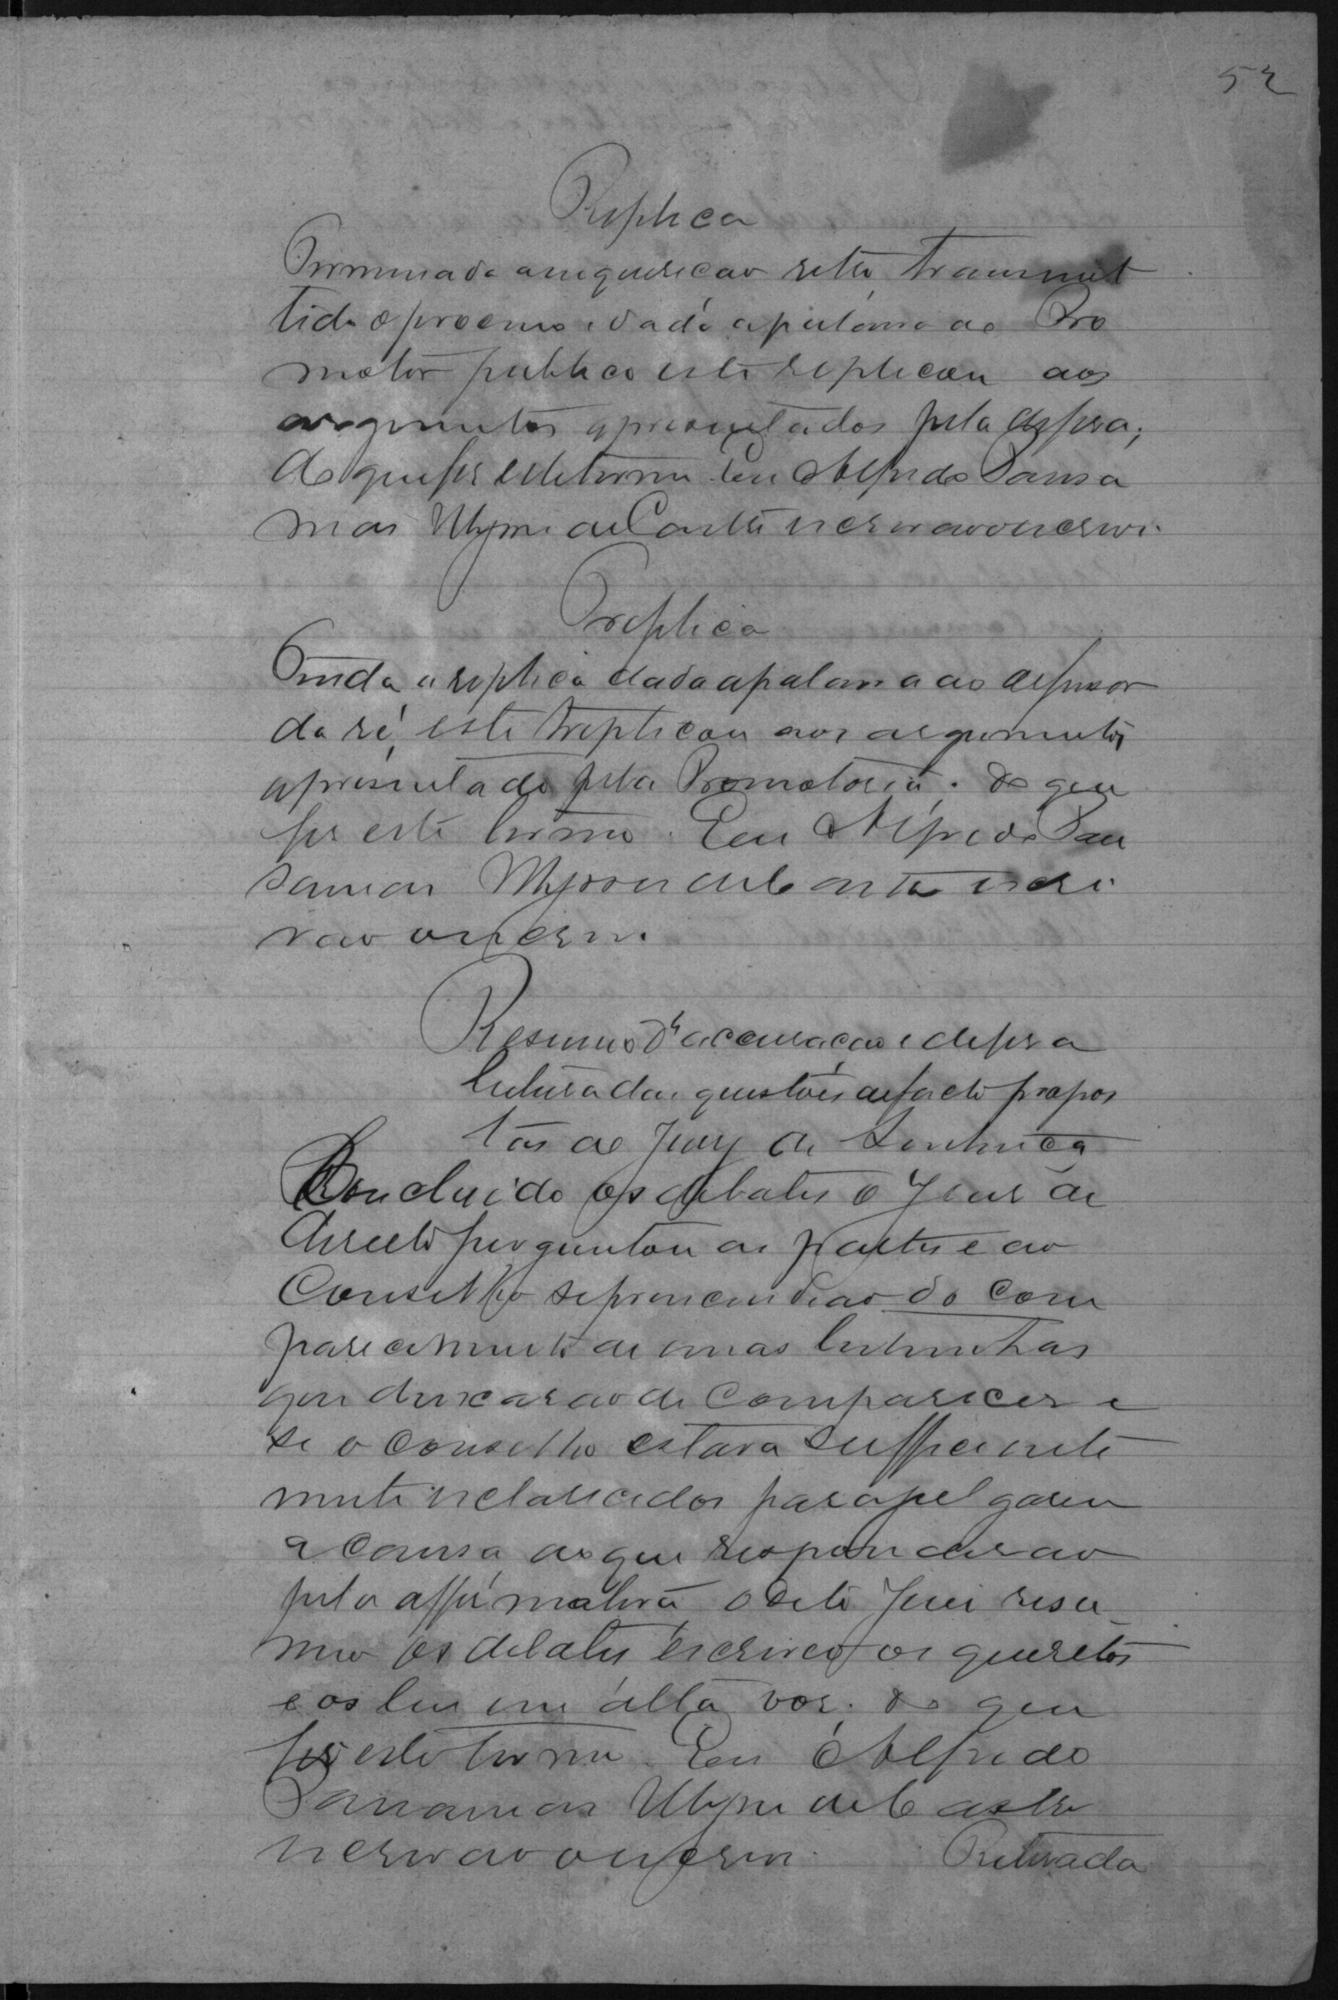 52
Replica
Terminada a inquirição retro, transmit
tido o processo e dada a palavra ao Pro
motor publico este replicou aos
argumentos apresentados pela defesa;
do que fiz este termo. Eu Alfredo Pausa
nias de Castro escrivão o escrevi.
Treplica
Finda a replica dada a palavra ao defensor
da ré, este treplicou aos argumentos
apresentado pela Promotoria. do que
fiz este termo. Eu Alfredo Pau
sanias de Castro escri
vão o escrevi.
Resumo da accusação e defesa
leitura das questões de facto propos
tas ao Jury de Sentença
Concluido os debates o Juiz de
Direito perguntou as partes e ao
Conselho se prescindião do com
parecimento de umas testemunhas
que deixarão de comparecer e
se o conselho estava sufficiente
mente esclarecidos para julgarem
a causa ao que responderão
pela affirmativa o dito Juiz resu
mio os debates escreveo os quesitos
e os leu em alta voz. do que
fiz este termo. Eu Alfredo
Pausanias de Castro
escrivão o escrevi.
Retirada